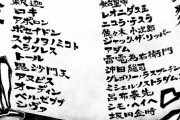 釈迦
ロキ
アポロン
ポセイドン
スサノヲノミコト
ヘラクレス
トール
毘沙門天
アヌビス
オーディン
ゼウス
シヴァ
レオニダス王
ニコラ・テスラ
佐々木小次郎
ジャック・ザ・リッパー
アダム
雷電為右衛門
沖田総司
グレゴリー・ラスプーチン
ミシェル・ノストラダムス
呂布奉先
シモ・ヘイヘ
坂田金時